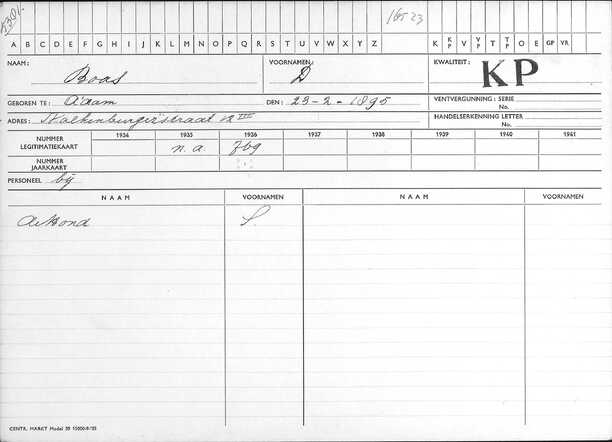 5301.
16523
A B C D E F G H I J K L M N O P Q R S T U V W X Y Z K KP V VP T TP O E GP VR
NAAM: Boas VOORNAMEN: D KWALITEIT: KP
GEBOREN TE: A'dam DEN: 23-2-1895 VENTVERGUNNING: SERIE No.
ADRES: Valkenburgerstraat 12 III HANDELSERKENNING LETTER No.
NUMMER LEGITIMATIEKAART 1934 1935 1936 1937 1938 1939 1940 1941
n.a. 769
NUMMER JAARKAART
PERSONEEL bij
NAAM VOORNAMEN NAAM VOORNAMEN
S.
CENTR. MARKT Model 30 15000-9-'35